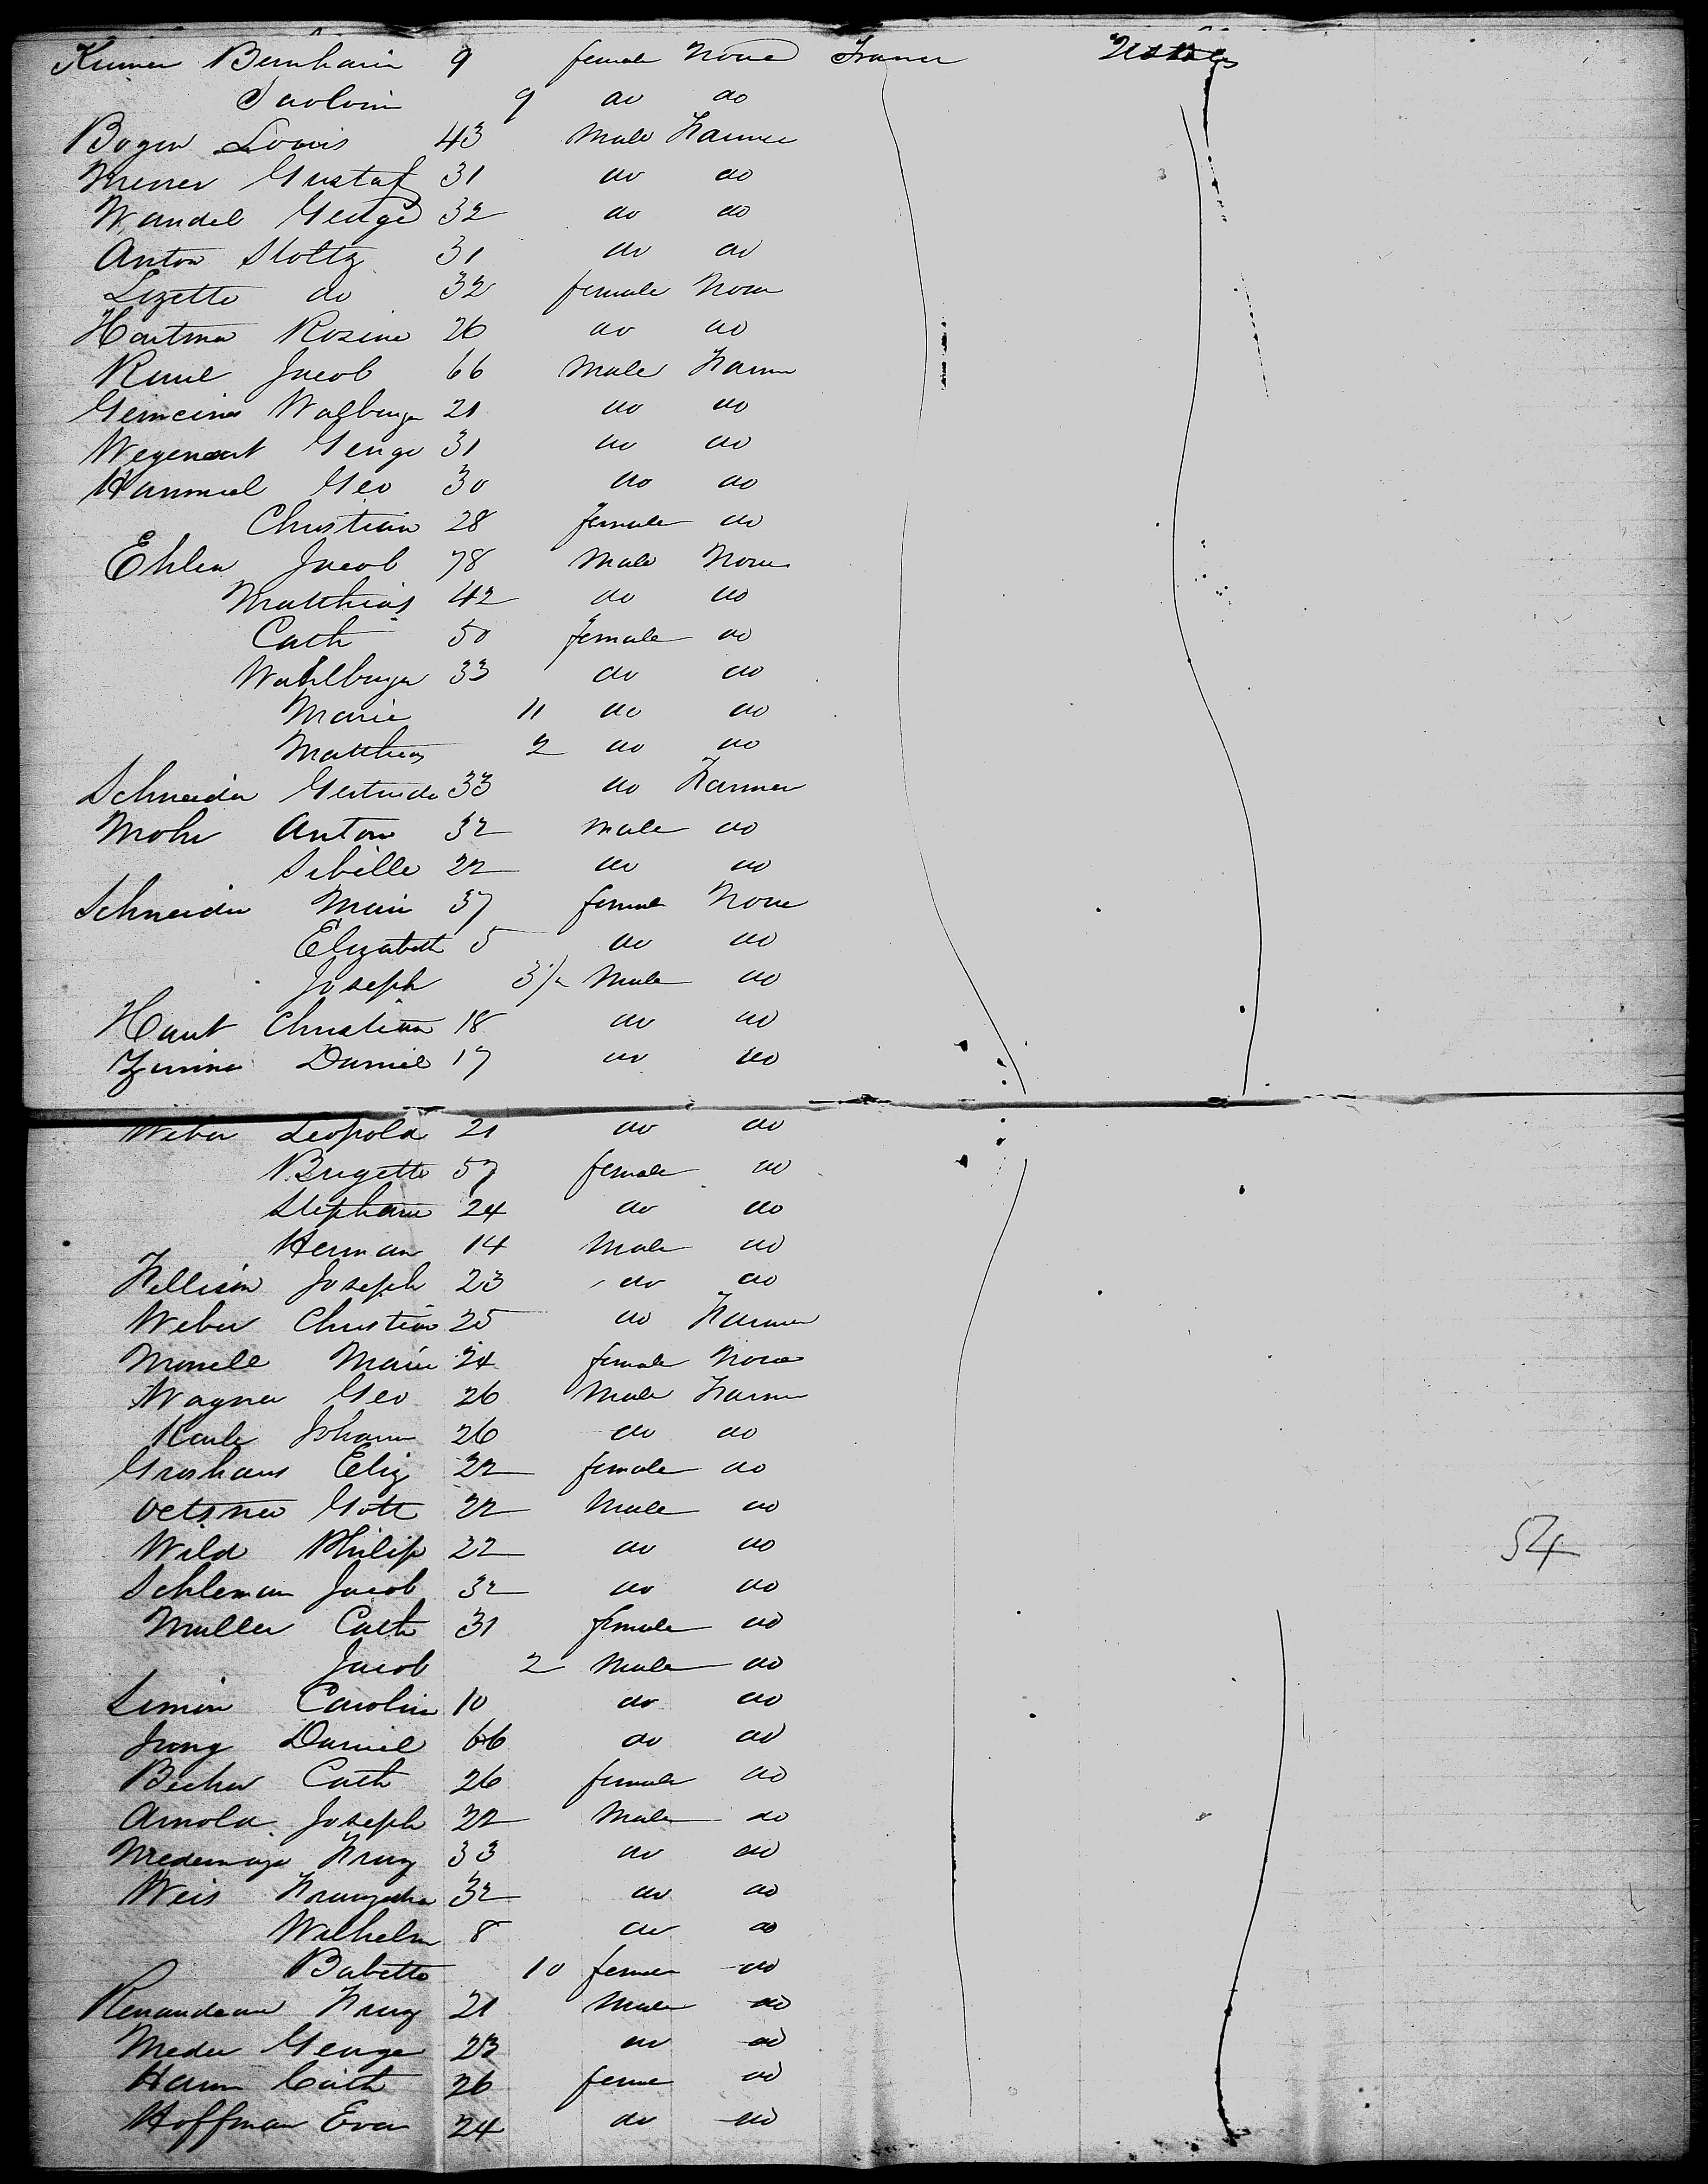 Bernhain 9 female None France
9 do do
Bogen Louis 43 Male Farmer
Gustaf 31 do do
Wandel George 32 do do
Anton Stoltz 31 do do
Lizette do 32 female None
Hartman Rosine 26 do do
Jacob 66 Male Farm
Walburga 21 do do
George 31 do do
Hammel Geo 30 do do
Christian 28 female do
Ehlen Jacob 78 Male None
Matthias 42 do do
Cath 50 female do
Wahlburga 33 do do
Marie 11 do do
Matthias 2 do do
Schneider Gertrude 33 do Farmer
Mohr Anton 32 male do
Sibille 22 do do
Schneider Marie 37 female None
Elizabeth 5 do do
Joseph 3/2 Male do
Haut Christian 18 do do
Daniel 17 do do
Weber Leopold 21 do do
Brigette 57 female do
Stephanie 24 do do
Herman 14 Male do
Joseph 23 do do
Weber Christian 25 do Farmer
Marie 24 female None
Wagner Geo 26 Male Farm
Karle Johann 26 do do
Groshans Eliz 22 female do
Gott 22 Male do
Wild Philip 22 do do
Schleman Jacob 32 do do
Muller Cath 31 female do
Jacob 2 Male do
Simon Carolin 10 do do
Jung Daniel 66 do do
Becker Cath 26 female do
Arnold Joseph 22 Male do
Franz 33 do do
Weis 32 do do
Wilhelm 8 do do
Babette 10 female do
Franz 21 Male do
Meder George 23 do do
Hann Cath 26 feme do
Hoffman Eva 24 do do
54